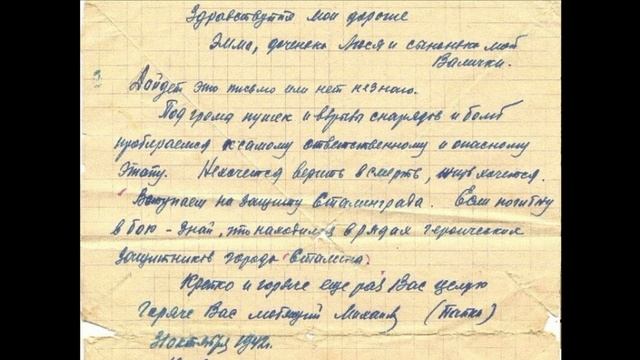 Здравствуйте мои дороги
Эмма, доченька Люся и сыночька мой
Валичка.
Дойдет это письмо или нет незнаю.
Под грома пушек и взрыва снарядов и бомб
пробираемся к самому ответственному и опасному
этапу. Нехочется верить в смерть, жить хочется.
Вступаем на защиту Сталинграда. Если погибну
в бою - знай, что находился в рядах героических
защитников города Сталина.
Крепко и горяче еще раз Вас целую
Горяче Вас любящий Михаил (Папка)
октября 1942г.